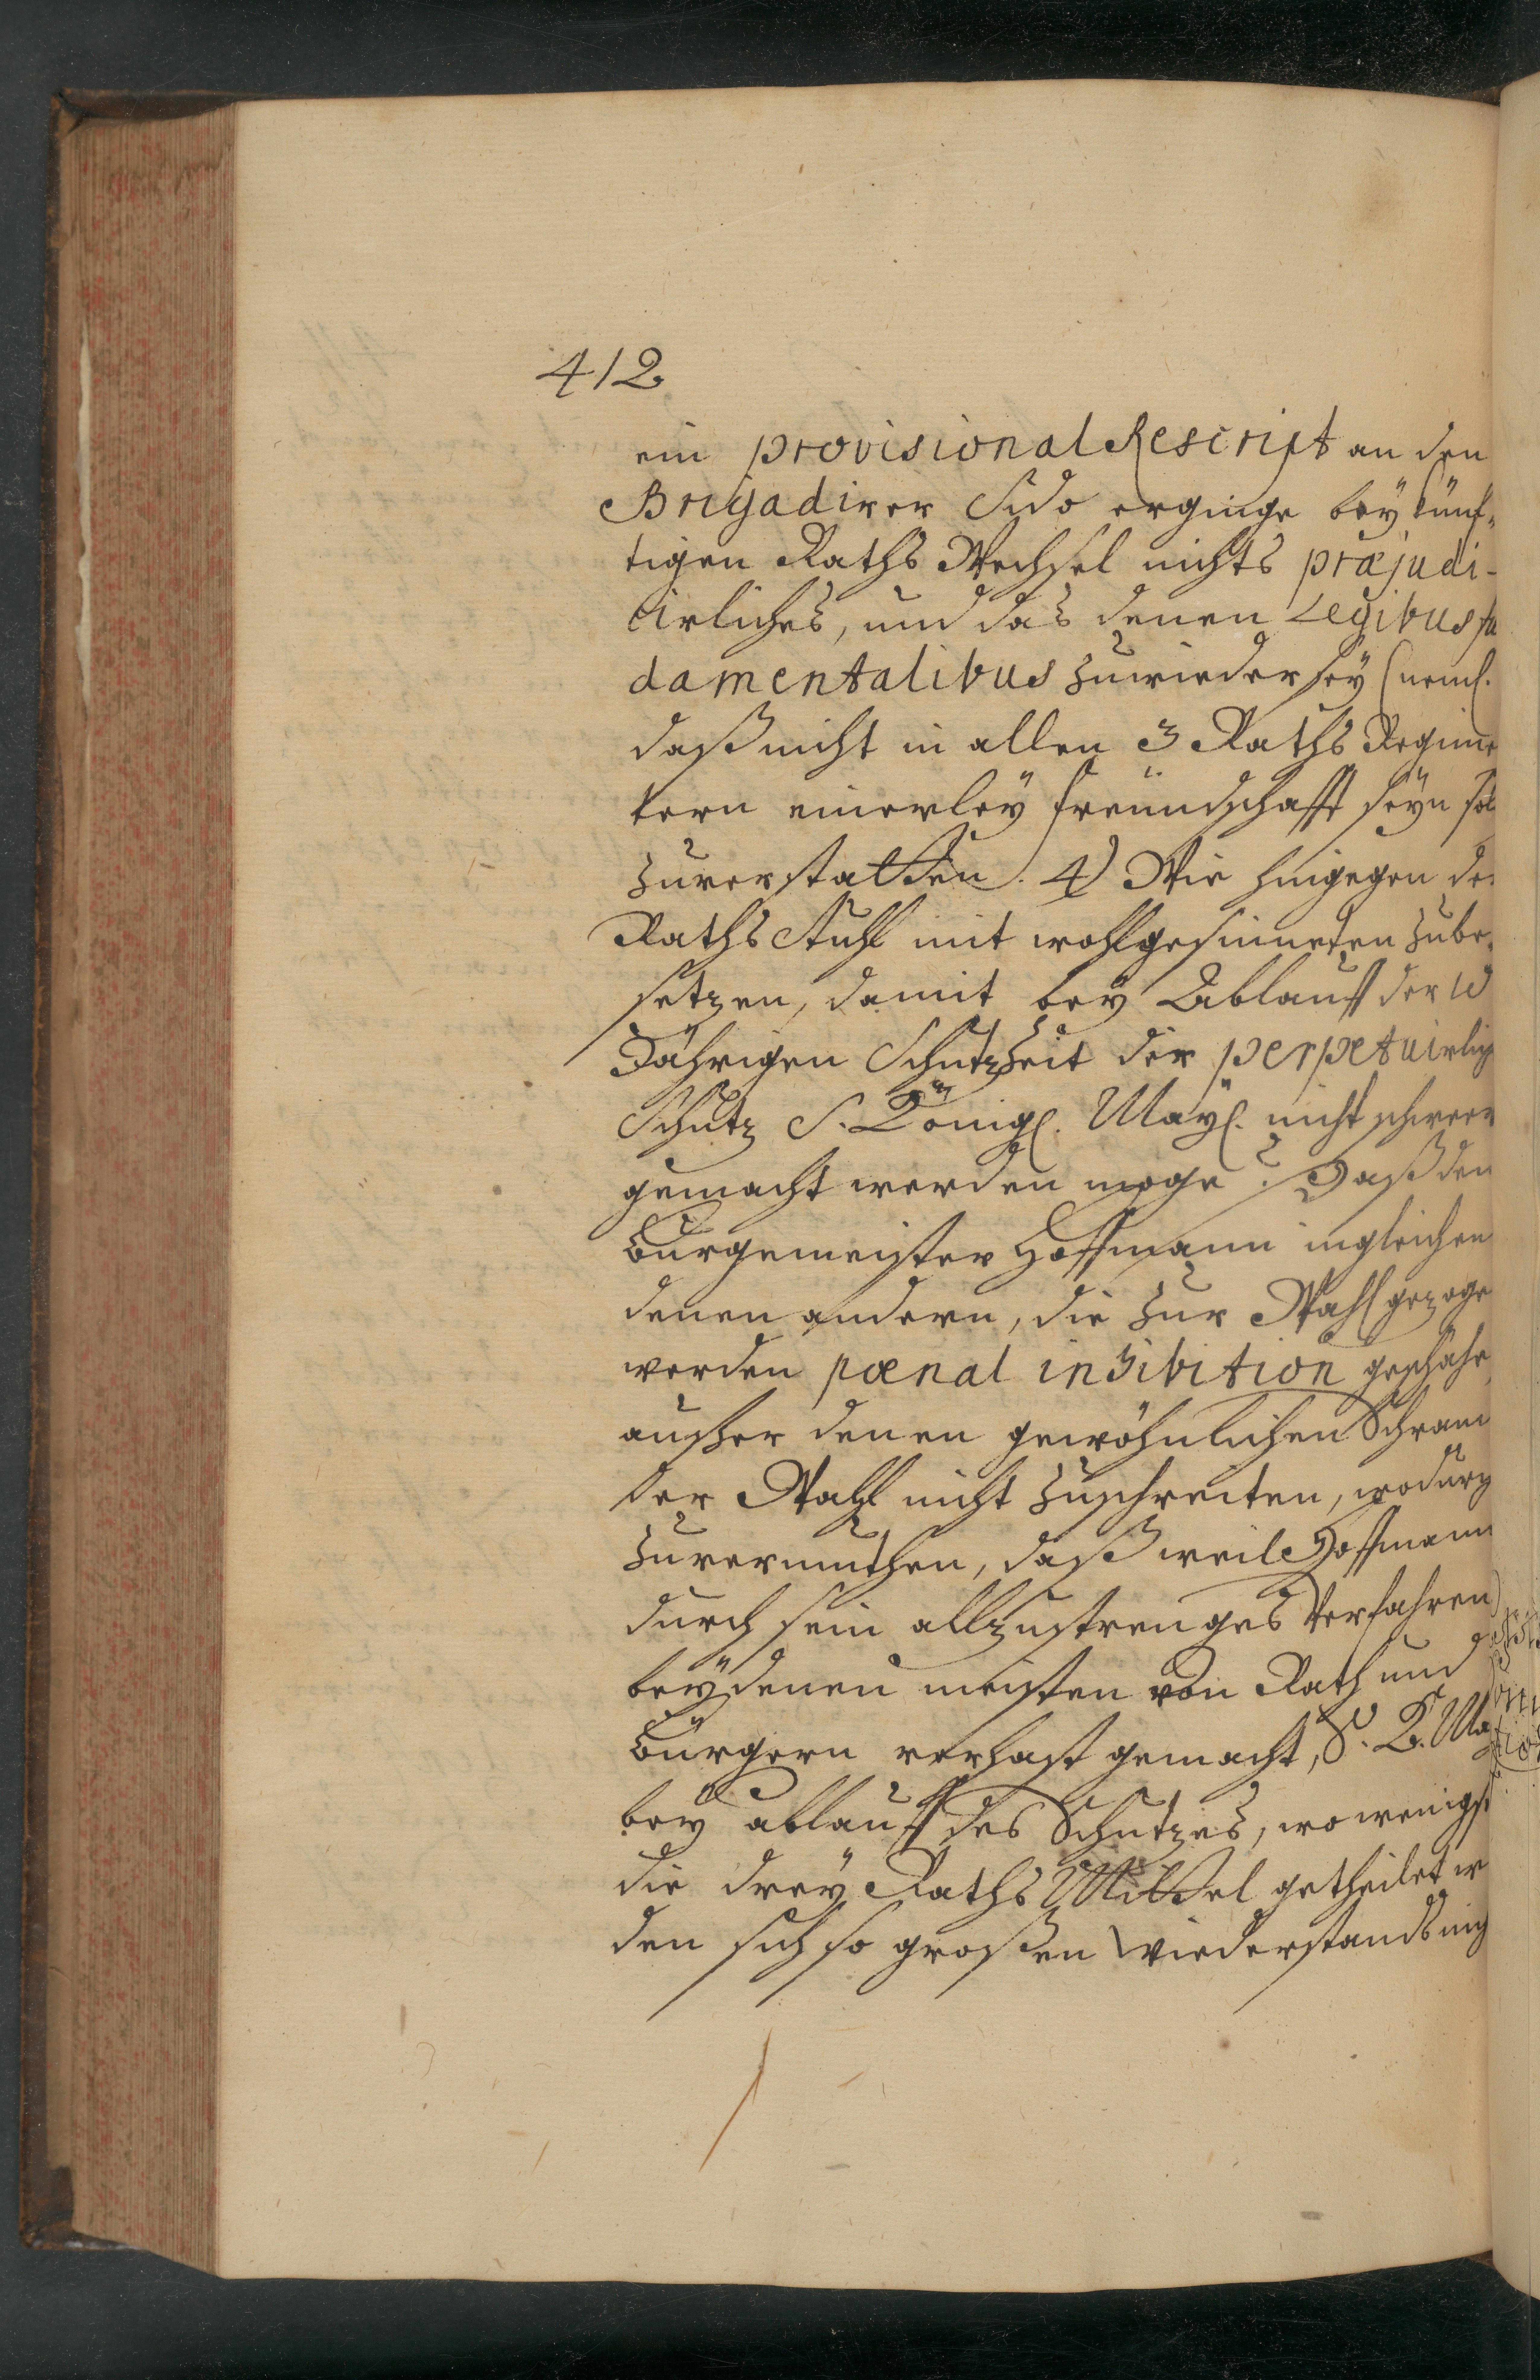 412
ein provisional Rescript an den
Brigadirer Sido erginge bey künf-
tigen Raths Wechsel nichts præjudi-
cirliches, und das denen Legibus fu
damentalibus zuwieder sey (neml.
daß nicht in allen 3 Raths Regime
tern einerley freündschafft seyn sol
zuverstatten. 4) Wie hingegen de
Raths Stuhl mit wohlgesinneten zube-
setzen, damit bey Ablauff der 10
Jährigen Schutzzeit der perpetuirlich
Schutz S. Königl. Mayt. nicht schwer
gemacht werden möge? Daß den
Bürgemeister Hoffmann ingleichen
denen andern, die zur Wahl gezoge
werden pœnal inhibition geschähe,
außer denen gewöhnlichen Schran
der Wahl nicht zuschreiten, wodurch
zuvermuthen, daß weil Hoffmann
durch sein allzustrenges Verfahren
bey denen meisten von Rath und
Bürgern verhast gemacht, S. K. Ma
bey ablauff des Schutzes, wo wenigst
die drey Raths Mittel getheilet w
den sich so großen Wiederstands nich